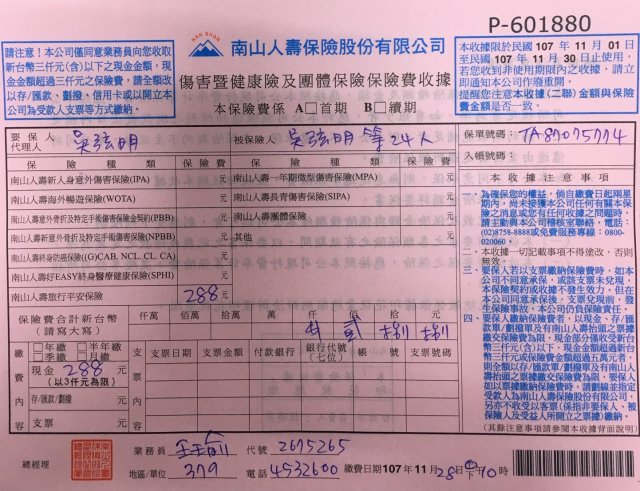 P-601880
NAN SHAN
南山人壽保險股份有限公司
傷害暨健康險及團體保險保險費收據
本保險費係 A□首期 B□續期
請注意！本公司僅同意業務員向您收取
新台幣三仟元(含)以下之現金金額，現
金金額超過三仟元之保險費，請全額改
以存/匯款、劃撥、信用卡或以開立本
公司為受款人支票等方式繳納。
本收據限於民國 107 年 11 月 01日
至民國 107 年 11 月 30 日止使用。
若您收到非使用期限內之收據，請立
即通知本公司作廢更新。
提醒您注意本收據(二聯)金額與保險
費金額是否一致。
要保人
代理人 吳弦明
被保險人 吳弦明等24人
保單號碼：TA87075774
入帳號碼：
保險種類 保險費
保險種類 保險費
南山人壽新人身意外傷害保險(IPA) 元
南山人壽海外暢遊保險(WOTA) 元
南山人壽意外骨折及特定手術傷害保險金契約(PBB) 元
南山人壽新意外骨折及特定手術傷害保險(NPBB) 元
南山人壽終身防癌保險((G)CAB, NCL, CL, CA) 元
南山人壽好EASY終身醫療健康保險(SPHI) 元
南山人壽旅行平安保險 288 元
南山人壽一年期微型傷害保險(MPA) 元
南山人壽長青傷害保險(SIPA) 元
南山人壽團體保險 元
其他 元
保險費合計新台幣
(請寫大寫)
仟萬 佰萬 拾萬 萬 仟 佰 拾 元
貳 捌 捌
繳費內容
□年繳 □半年繳
□季繳 □月繳
現金 288 元
(以3仟元為限)
存/匯款/劃撥 元
支票 元
支票內容
支票日期 支票金額 付款銀行 銀行代號(七位) 帳號 支票號碼
本收據注意事項
一、為確保您的權益，倘自繳費日起兩星
期內，尚未接獲本公司任何有關本保
險之消息或您有任何收據之問題時，
請主動與本公司稽核室聯絡，電話：
(02)8758-8888或免費服務專線：0800-
020060。
二、本收據一切記載事項不得塗改，否則
無效。
三、要保人若以支票繳納保險費時，如本
公司不同意承保，或該支票未兌現，
本保險契約或收據不發生效力，但在
本公司同意承保後，支票兌現前，發
生保險事故，本公司仍負保險責任。
四、要保人繳納保險費者，以現金、存/匯
款單/劃撥單及有南山人壽抬頭之票據
繳交保險費為限，現金部分僅收受新
台幣三仟元(含)以下，現金金額超過新台
幣三仟元或保險費金額超過五萬元者，
則全額以存/匯款單/劃撥單及有南山人
壽抬頭之票據繳交保險費為限，要保人
如以票據繳納保險費時，請劃線並指定
受款人為南山人壽保險股份有限公司，
另亦不收受以客票(係指非要保人、被
保險人及受益人所開立之票據)繳納。
(其餘注意事項請參閱本收據背面說明)
總經理
業務員 代號 2675265
地區/單位：379 電話 4532600 繳費日期107年11月28日下10時